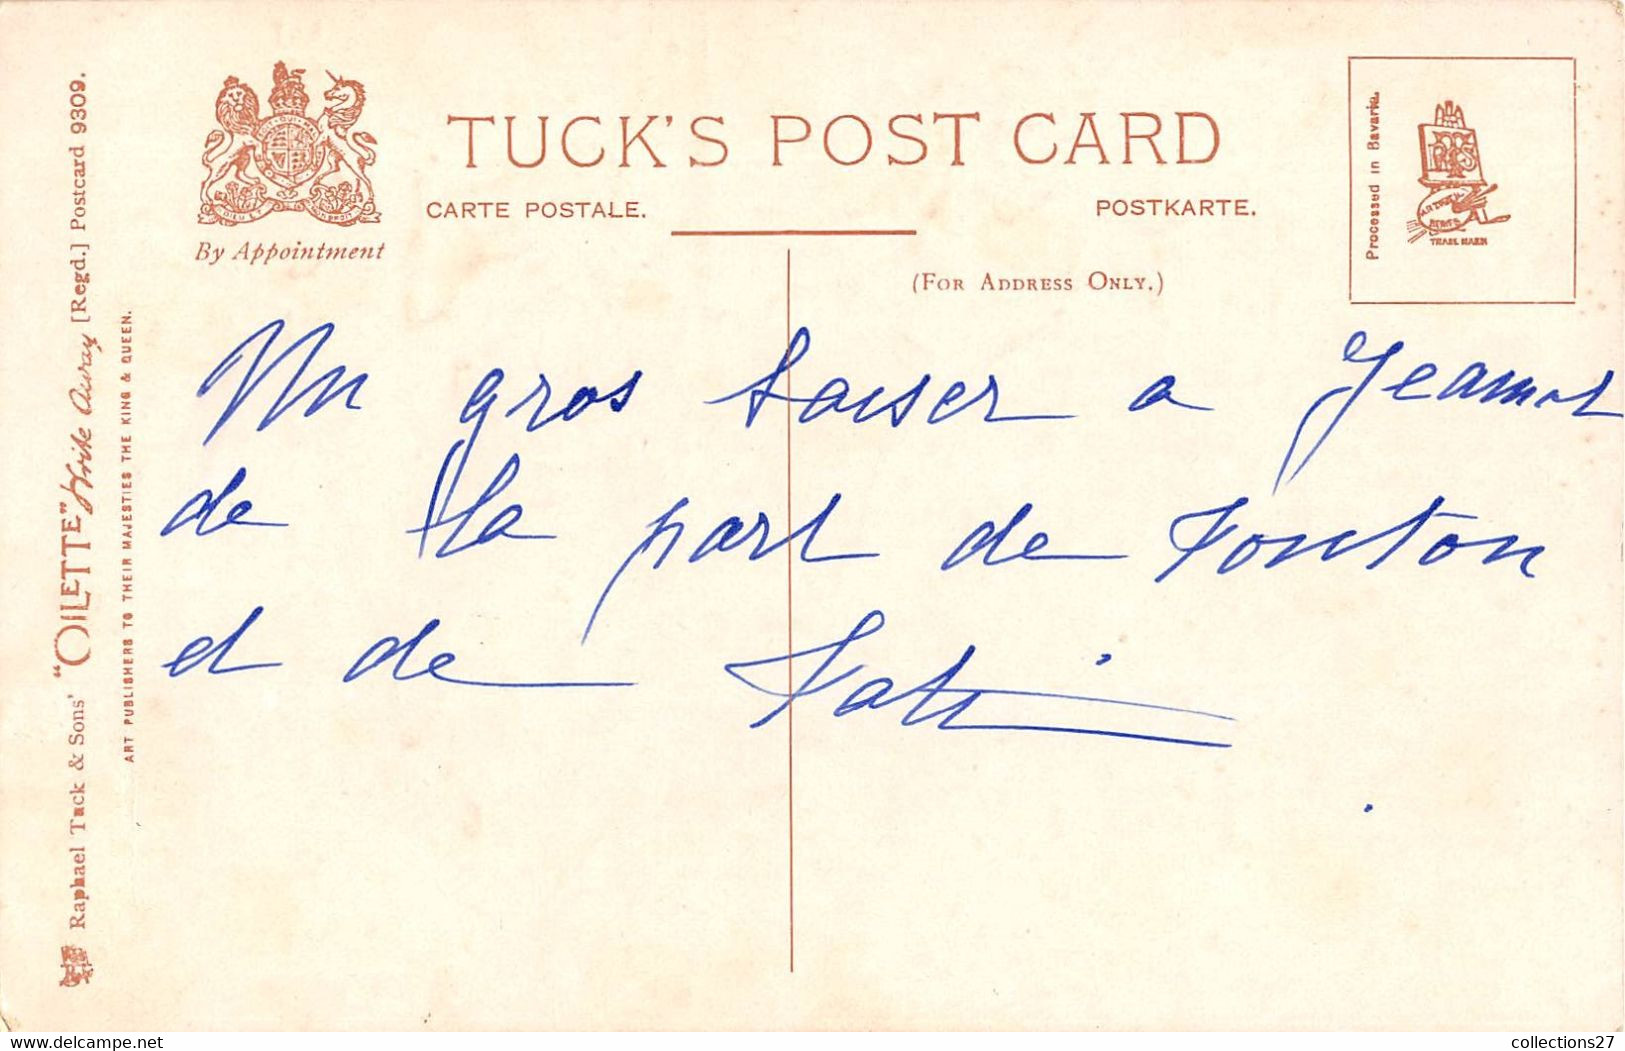 TUCK'S POST CARD
CARTE POSTALE.
POSTKARTE.
By Appointment
(FOR ADDRESS ONLY.)
Processed in Bavaria.
TRADE MARK
Raphael Tuck & Sons' "OILETTE" Write Away [Regd.] Postcard 9309.
ART PUBLISHERS TO THEIR MAJESTIES THE KING & QUEEN.
Un gros baiser a Jeannot
de la part de Tonton
et de Tati
www.delcampe.net
collections27